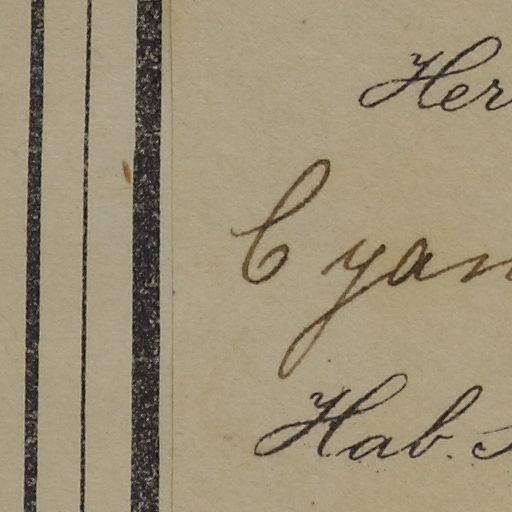 Her
Cyan
Hab.